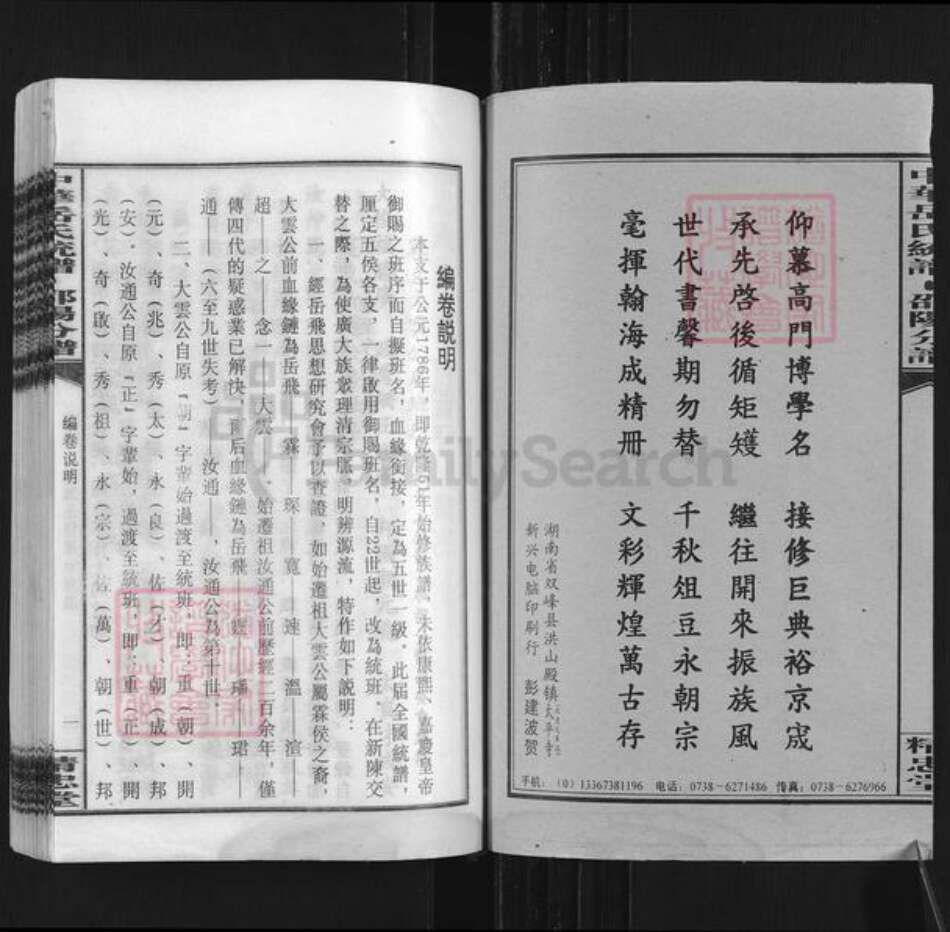 中華岳氏統譜·邵陽分譜
精忠堂
仰慕高門博學名　接修巨典裕京宬
承先啓後循矩矱　繼往開來振族風
世代書馨期勿替　千秋俎豆永朝宗
毫揮翰海成精冊　文彩輝煌萬古存
湖南省双峰县洪山殿镇
新兴电脑印刷行　彭建波贺
手机：（0）13367381196　电话：0738－6271486　传真：0738－6276966
FamilySearch
编卷説明
本支于公元1786年，即乾隆51年始修族譜，未依康熙、嘉慶皇帝
御賜之班序而自擬班名，血緣銜接，定為五世一級。此届全國統譜，
厘定五侯各支，一律啟用御賜班名，自22世起，改為統班。在新陳交
替之際，為使廣大族衆理清宗脈，明辨源流，特作如下説明：
一、經岳飛思想研究會予以查證，如始遷祖大雲公屬霖侯之裔，
大雲公前血緣鏈為岳飛——霖——琛——寬——速——溫——渲——
超——之——念一——大雲。始遷祖汝通公前歷經二百余年，僅
傳四代的疑惑業已解決，前后血緣鏈為岳飛——霖————珺——
通——（六至九世失考）——汝通——，汝通公為第十世。
二、大雲公自原“朝”字輩始過渡至統班，即：重（朝）、開
（元）、奇（兆）、秀（太）、永（良）、佐（才）、朝（成）、邦
（安）。汝通公自原“正”字輩始，過渡至統班，即：重（正）、開
（光）、奇（啟）、秀（祖）、永（宗）、佐（萬）、朝（世）、邦
中華岳氏統譜·邵陽分譜
编卷说明
一
精忠堂